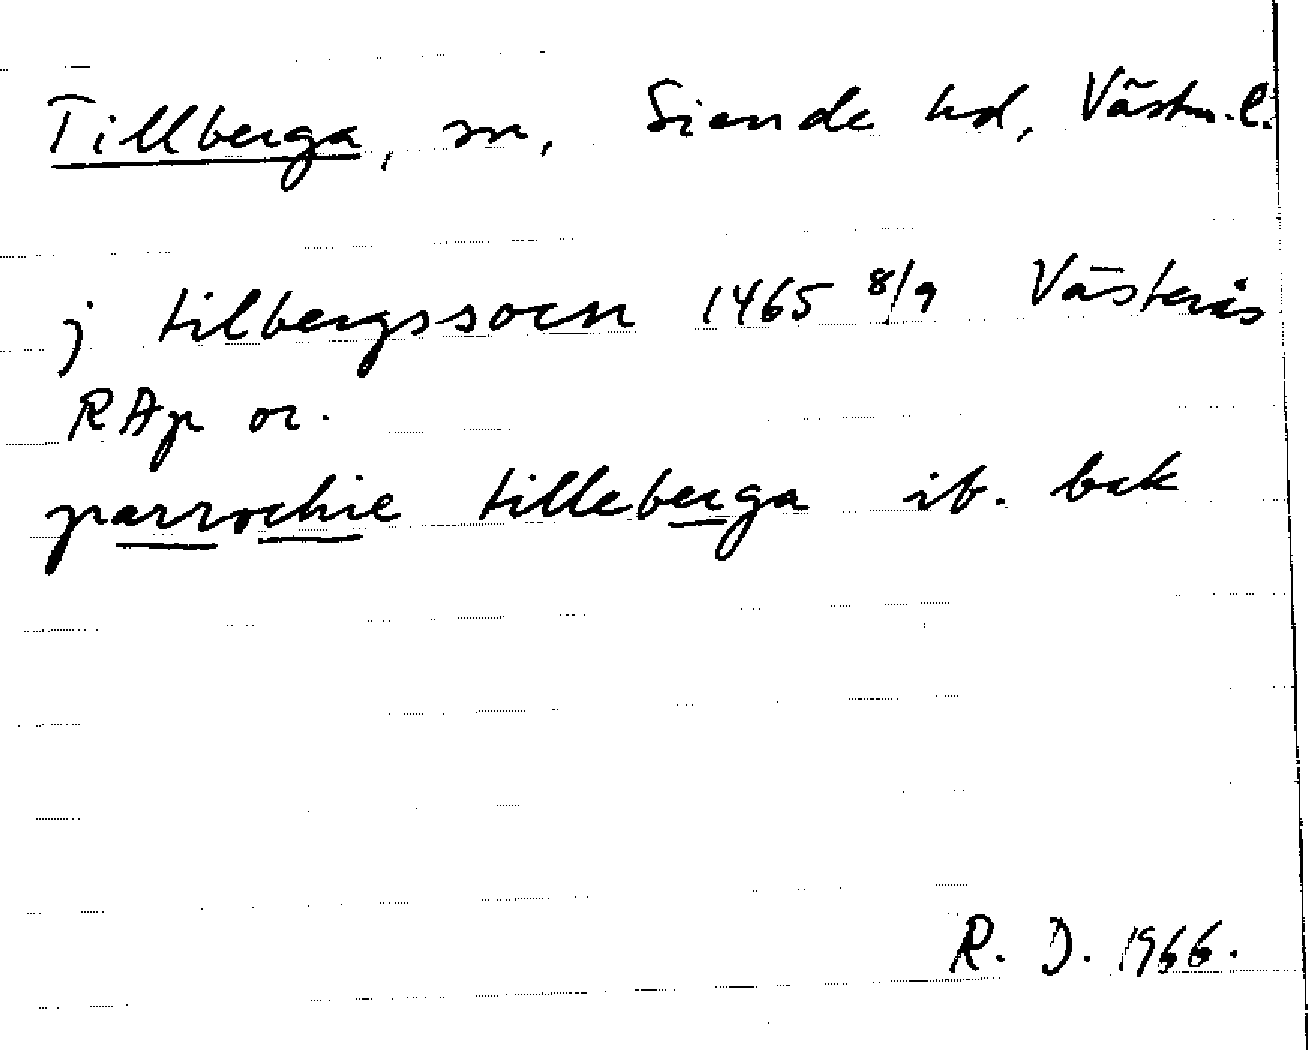 Tillberga, sn, Siende hd, Västm. l.
j tilbergssocn 1465 8/9 Västerås
RAp or.
parrochie tilleberga ib. bak
R. D. 1966.